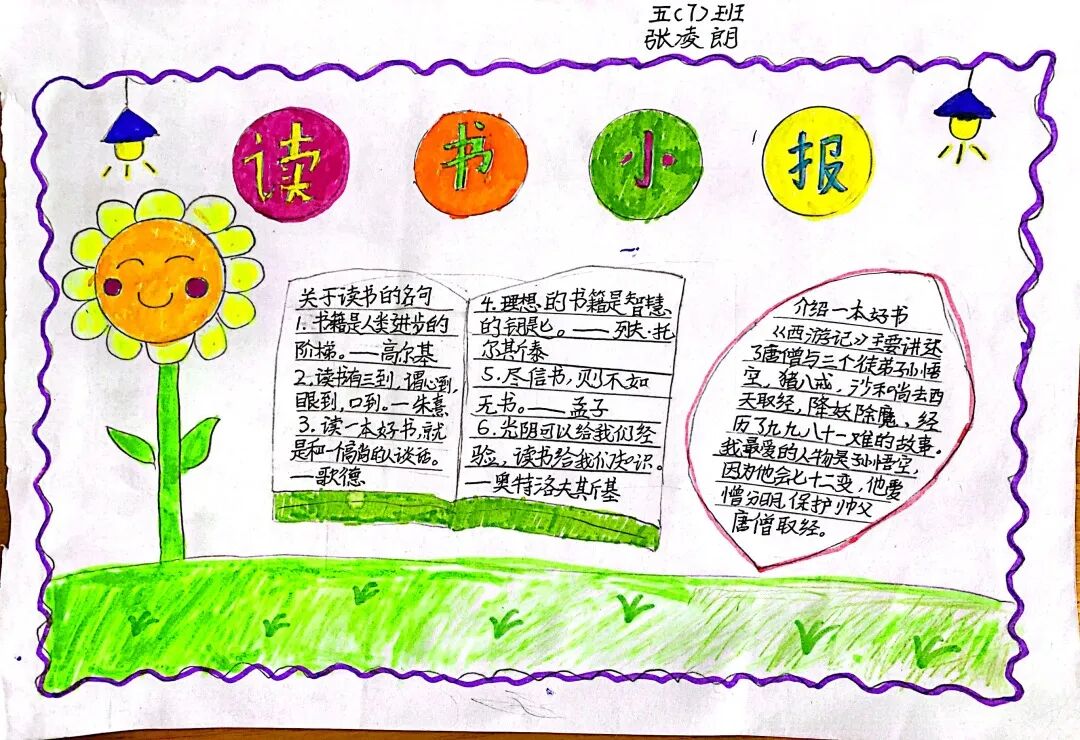 五(7)班
张凌朗
读书小报
关于读书的名句
1.书籍是人类进步的
阶梯。——高尔基
2.读书有三到,谓心到,
眼到,口到。—朱熹
3.读一本好书,就
是和一个高尚的人谈话。
—歌德
4.理想的书籍是智慧
的钥匙。——列夫·托
尔斯泰
5.尽信书,则不如
无书。——孟子
6.光阴可以给我们经
验,读书给我们知识。
—奥特洛夫斯基
介绍一本好书
《西游记》主要讲述
了唐僧与三个徒弟孙悟
空,猪八戒,沙和尚去西
天取经,降妖除魔、经
历了九九八十一难的故事。
我最爱的人物是孙悟空,
因为他会七十二变,他爱
憎分明,保护师父
唐僧取经。